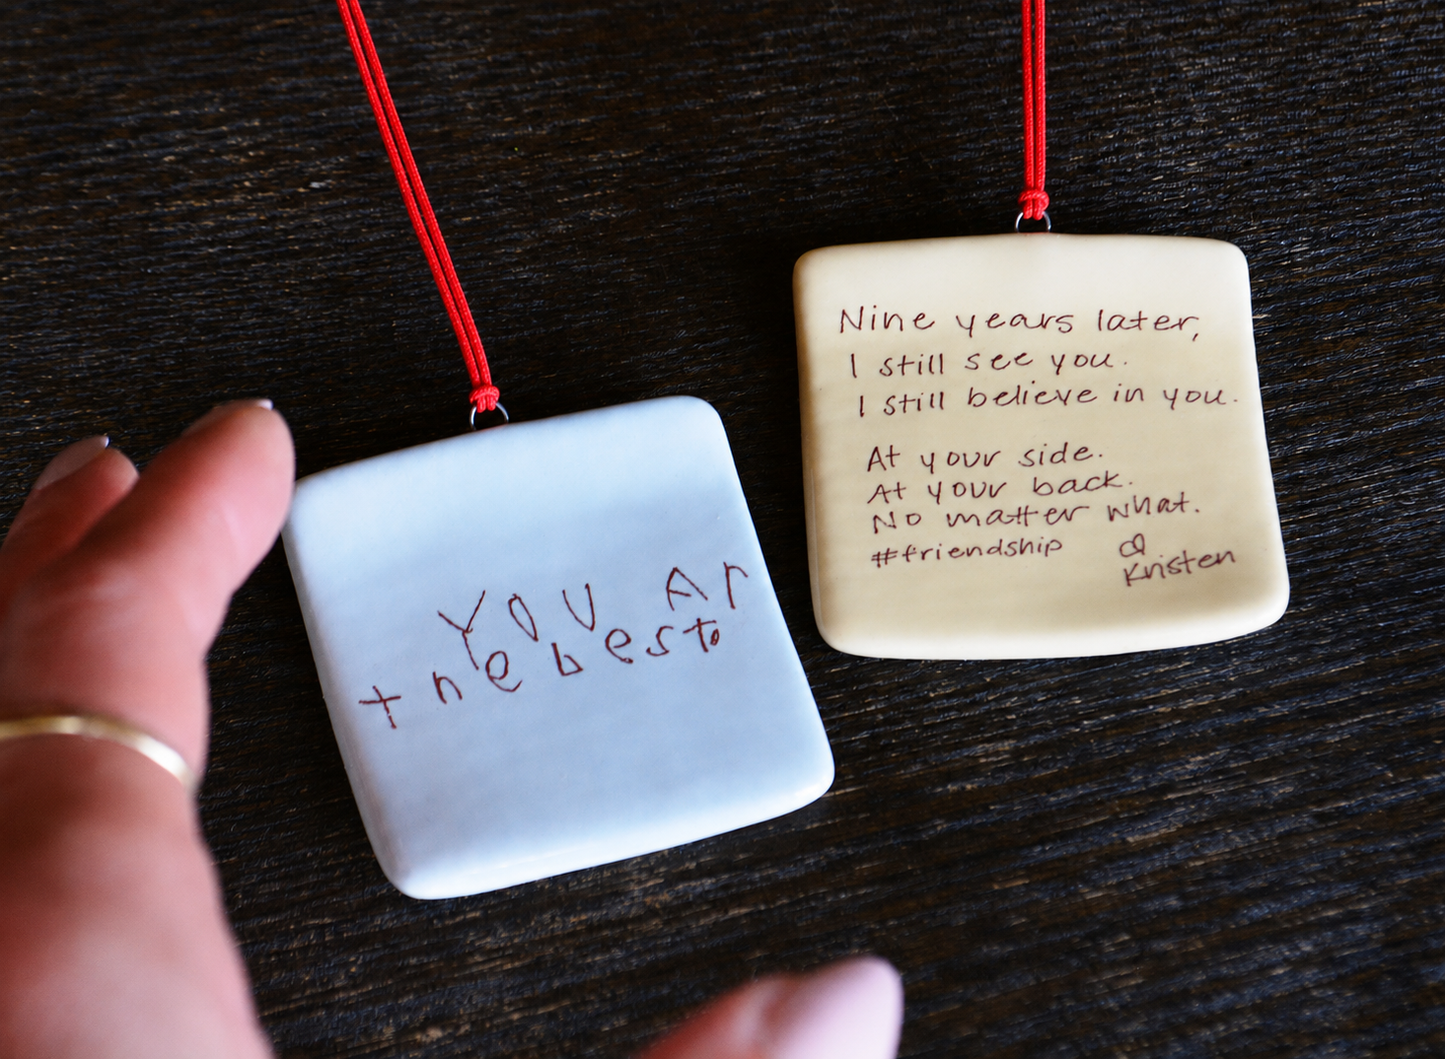 YOU Ar
the besto
Nine years later,
I still see you.
I still believe in you.
At your side.
At your back.
No matter what.
#friendship
Kristen